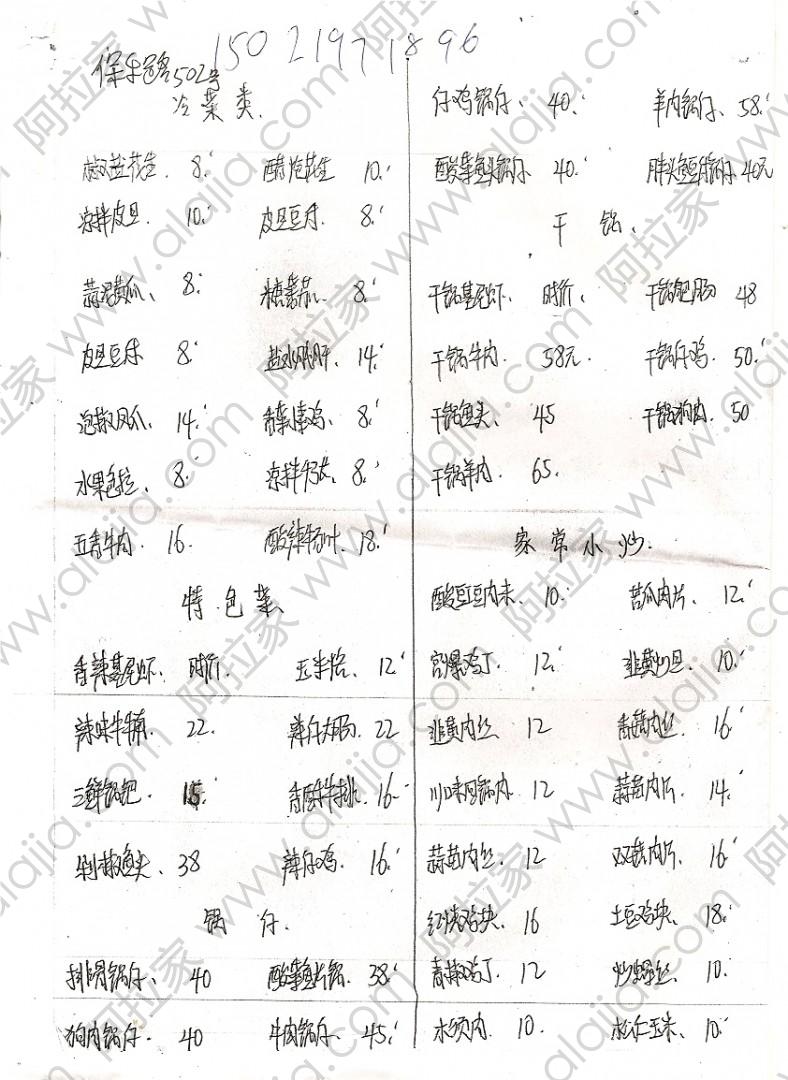 15021971896
保乐路502号
冷菜类
椒盐花生 8. 醋泡花生 10.
凉拌皮旦 10. 皮旦豆付 8.
蒜泥黄瓜 8. 糖番茄 8.
皮旦豆付 8. 盐水鸭肝 14.
泡椒凤爪 14. 8.
水果色拉 8. 8.
五香牛肉 16. 18.
特色菜
香辣基尾虾 时价 玉米烙 12
辣味牛腩 22. 辣仔大肠 22
三鲜锅巴 15. 香酥牛排 16
剁椒鱼头 38 辣仔鸡 16.
锅仔
排骨锅仔 40 酸菜鱼片锅 38.
狗肉锅仔 40 牛肉锅仔 45.
仔鸡锅仔 40. 羊肉锅仔 58.
酸菜鱼头锅仔 40. 胖头鱼豆付锅仔 40元
干锅
干锅基尾虾 时价 干锅肥肠 48
干锅牛肉 58元 干锅仔鸡 50.
干锅鱼头 45 干锅狗肉 50
干锅羊肉 65.
家常小炒
酸豇豆肉末 10. 苦瓜肉片 12.
宫爆鸡丁 12. 韭黄炒旦 10.
韭黄肉丝 12 香菇肉丝 16.
川味回锅肉 12 蒜苗肉片 14.
蒜苗肉丝 12 双菇肉片 16.
红烧鸡块 16 土豆鸡块 18.
青椒鸡丁 12 炒螺丝 10.
木须肉 10. 松仁玉米 10.
阿拉家 www.alajia.com